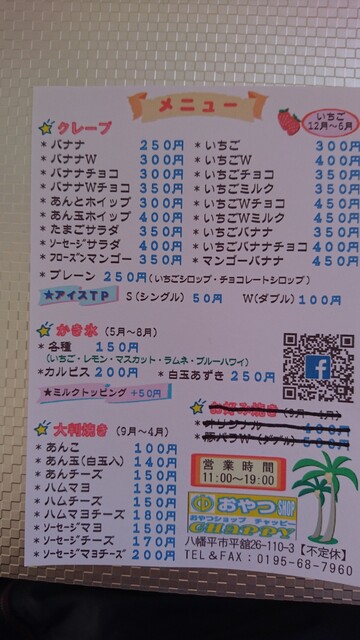 メニュー
いちご
12月～6月
クレープ
* バナナ 250円
* バナナW 300円
* バナナチョコ 300円
* バナナWチョコ 350円
* あんとホイップ 300円
* あん玉ホイップ 400円
* たまごサラダ 350円
* ソーセージサラダ 400円
* フローズンマンゴー 350円
* いちご 300円
* いちごW 400円
* いちごチョコ 350円
* いちごミルク 350円
* いちごWチョコ 450円
* いちごWミルク 450円
* いちごバナナ 350円
* いちごバナナチョコ 400円
* マンゴーバナナ 450円
* プレーン 250円(いちごシロップ・チョコレートシロップ)
★アイスTP S(シングル) 50円 W(ダブル) 100円
かき氷 (5月～8月)
* 各種 150円
(いちご・レモン・マスカット・ラムネ・ブルーハワイ)
*カルピス 200円 * 白玉あずき 250円
★ミルクトッピング +50円
お好み焼き
* オリジナル
大判焼き (9月～4月)
* あんこ 100円
* あん玉(白玉入) 140円
* あんチーズ 150円
* ハムマヨ 130円
* ハムチーズ 150円
* ハムマヨチーズ 180円
* ソーセージマヨ 150円
* ソーセージチーズ 170円
* ソーセージマヨチーズ 200円
営業時間
11:00～19:00
おやつSHOP
おやつショップ チャッピー
CHAPPY
八幡平市平舘26-110-3【不定休】
TEL&FAX:0195-68-7960